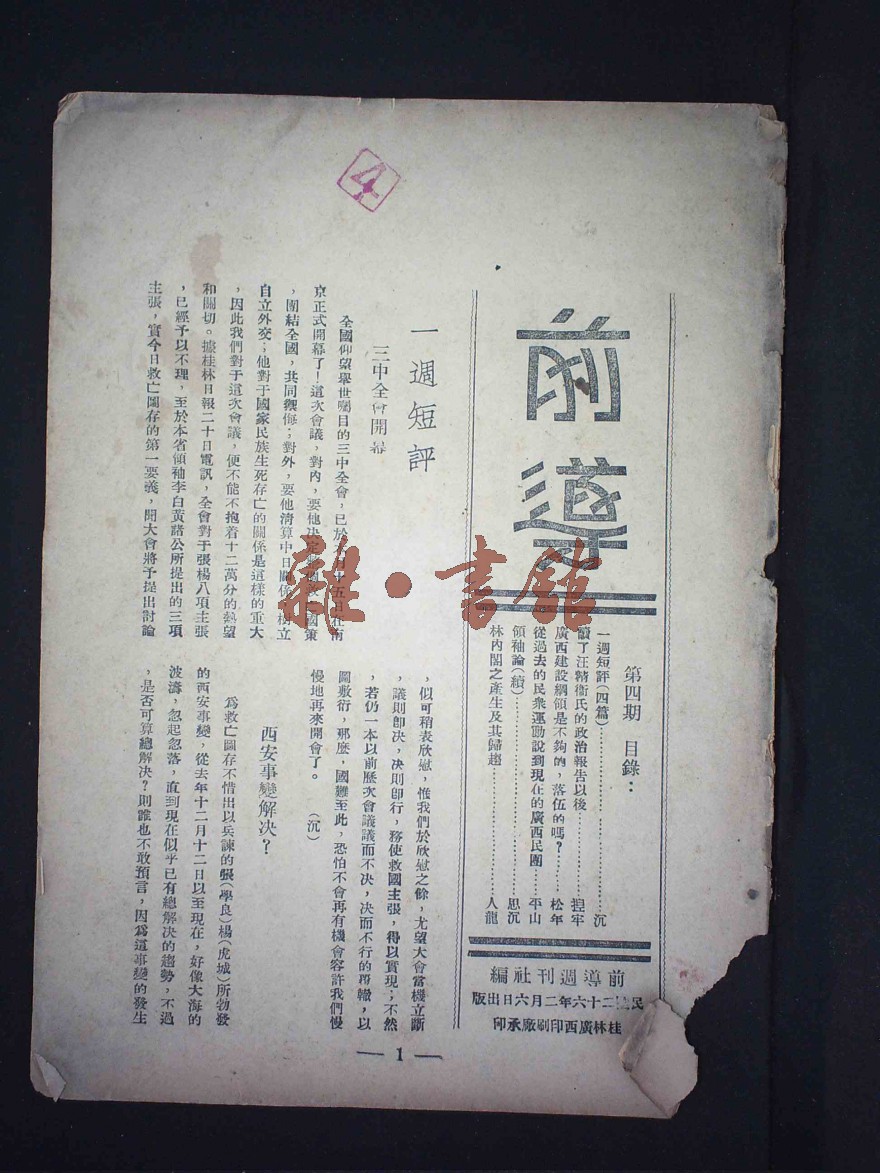 前導
第四期 目錄：
一週短評（四篇）…………沉
讀了汪精衛氏的政治報告以後…………捏牢
廣西建設綱領是不夠的，落伍的嗎？…………松年
從過去的民衆運動說到現在的廣西民團…………平山
領袖論（續）…………思沉
林內閣之產生及其歸趨…………人龍
前導週刊社編
民國二十六年二月六日出版
桂林廣西印刷廠承印
4
一週短評
三中全會開幕
全國仰望舉世矚目的三中全會，已於 月十五日在南
京正式開幕了！這次會議，對內，要他決定 國策
，團結全國，共同禦侮；對外，要他清算中日關係 樹立
自立外交；他對于國家民族生死存亡的關係是這樣的重大
，因此我們對于這次會議，便不能不抱着十二萬分的熱望
和關切。據桂林日報二十日電訊，全會對于張楊八項主張
，已經予以不理，至於本省領袖李白黃諸公所提出的三項
主張，實今日救亡圖存的第一要義，開大會將予提出討論
，似可稍表欣慰，惟我們於欣慰之餘，尤望大會當機立斷
，議則即决，决則即行，務使救國主張，得以實現；不然
，若仍一本以前歷次會議議而不决，决而不行的覆轍，以
圖敷衍，那麽，國難至此，恐怕不會再有機會容許我們慢
慢地再來開會了。 （沉）
西安事變解决？
爲救亡圖存不惜出以兵諫的張（學良）楊（虎城）所勃發
的西安事變，從去年十二月十二日以至現在，好像大海的
波濤，忽起忽落，直到現在似乎已有總解决的趨勢，不過
，是否可算總解决？則誰也不敢預言，因爲這事變的發生
— 1 —
雜·書館